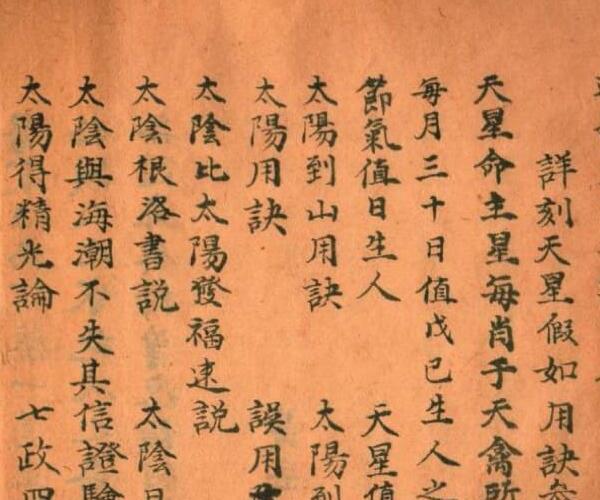 詳刻天星假如用訣
天星命主星每肖于天禽所
每月三十日值戊已生人之
節氣值日生人 天星值
太陽到山用訣 太陽到
太陽用訣 誤用
太陰比太陽發福速説
太陰根洛書説 太陰日
太陰與海潮不失其信證驗
太陽得精光論 七政四